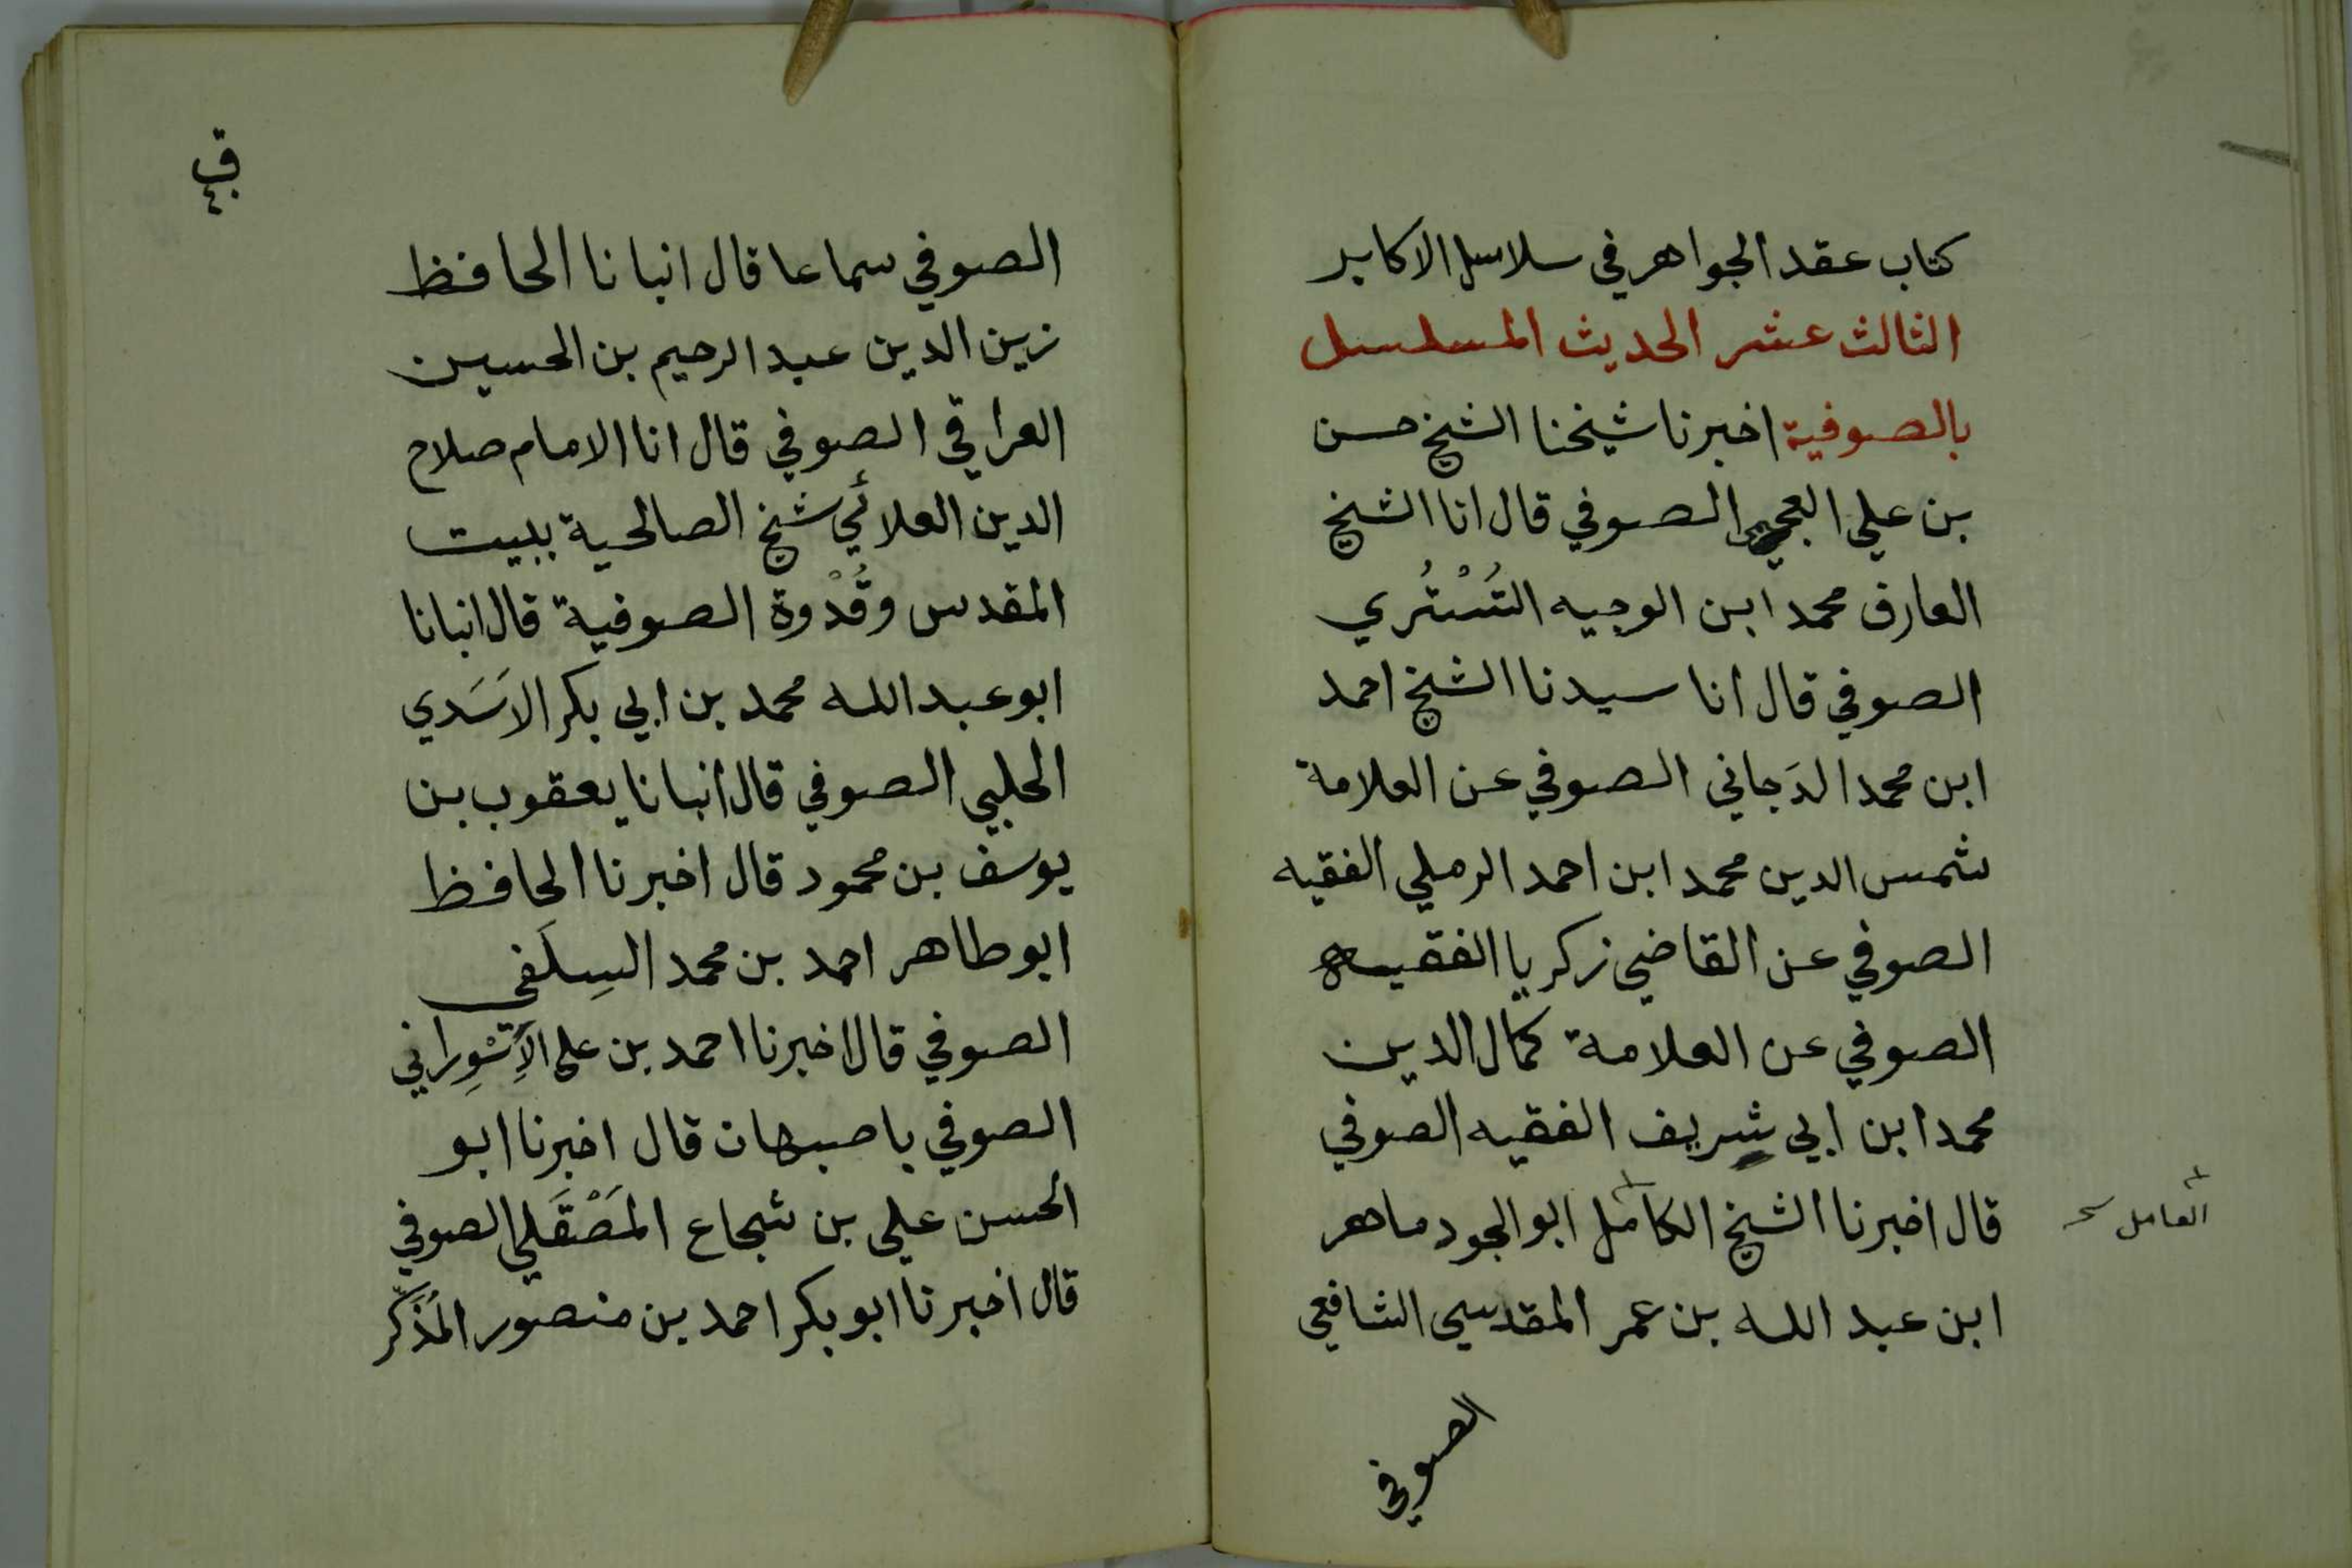 كتاب عقد الجواهر في سلاسل الاكابر
الثالث عشر الحديث المسلسل
بالصوفية اخبرنا شيخنا الشيخ حسن
بن علي العجمي الصوفي قال انا الشيخ
العارف محمد ابن الوجيه التُسْتُري
الصوفي قال انا سيدنا الشيخ احمد
ابن محمد الدَجاني الصوفي عن العلامة
شمس الدين محمد ابن احمد الرملي الفقيه
الصوفي عن القاضي زكريا الفقيه
الصوفي عن العلامة كمال الدين
محمد ابن ابي شريف الفقيه الصوفي
قال اخبرنا الشيخ الكامل ابو الجود ماهر
العامل
ابن عبد الله بن عمر المقدسي الشافعي
الصوفي
الصوفي سماعا قال انبانا الحافظ
زين الدين عبد الرحيم بن الحسين
العراقي الصوفي قال انا الامام صلاح
الدين العلائي شيخ الصالحية ببيت
المقدس وقُدْوة الصوفية قال انبانا
ابو عبد الله محمد بن ابي بكر الاَسَدي
الحلبي الصوفي قال انبانا يعقوب بن
يوسف بن محمود قال اخبرنا الحافظ
ابو طاهر احمد بن محمد السِلَفي
الصوفي قال اخبرنا احمد بن علي الاِسْوِراني
الصوفي باصبهان قال اخبرنا ابو
الحسن علي بن شجاع المَصْقَلي الصوفي
قال اخبرنا ابو بكر احمد بن منصور المُذَكِّر